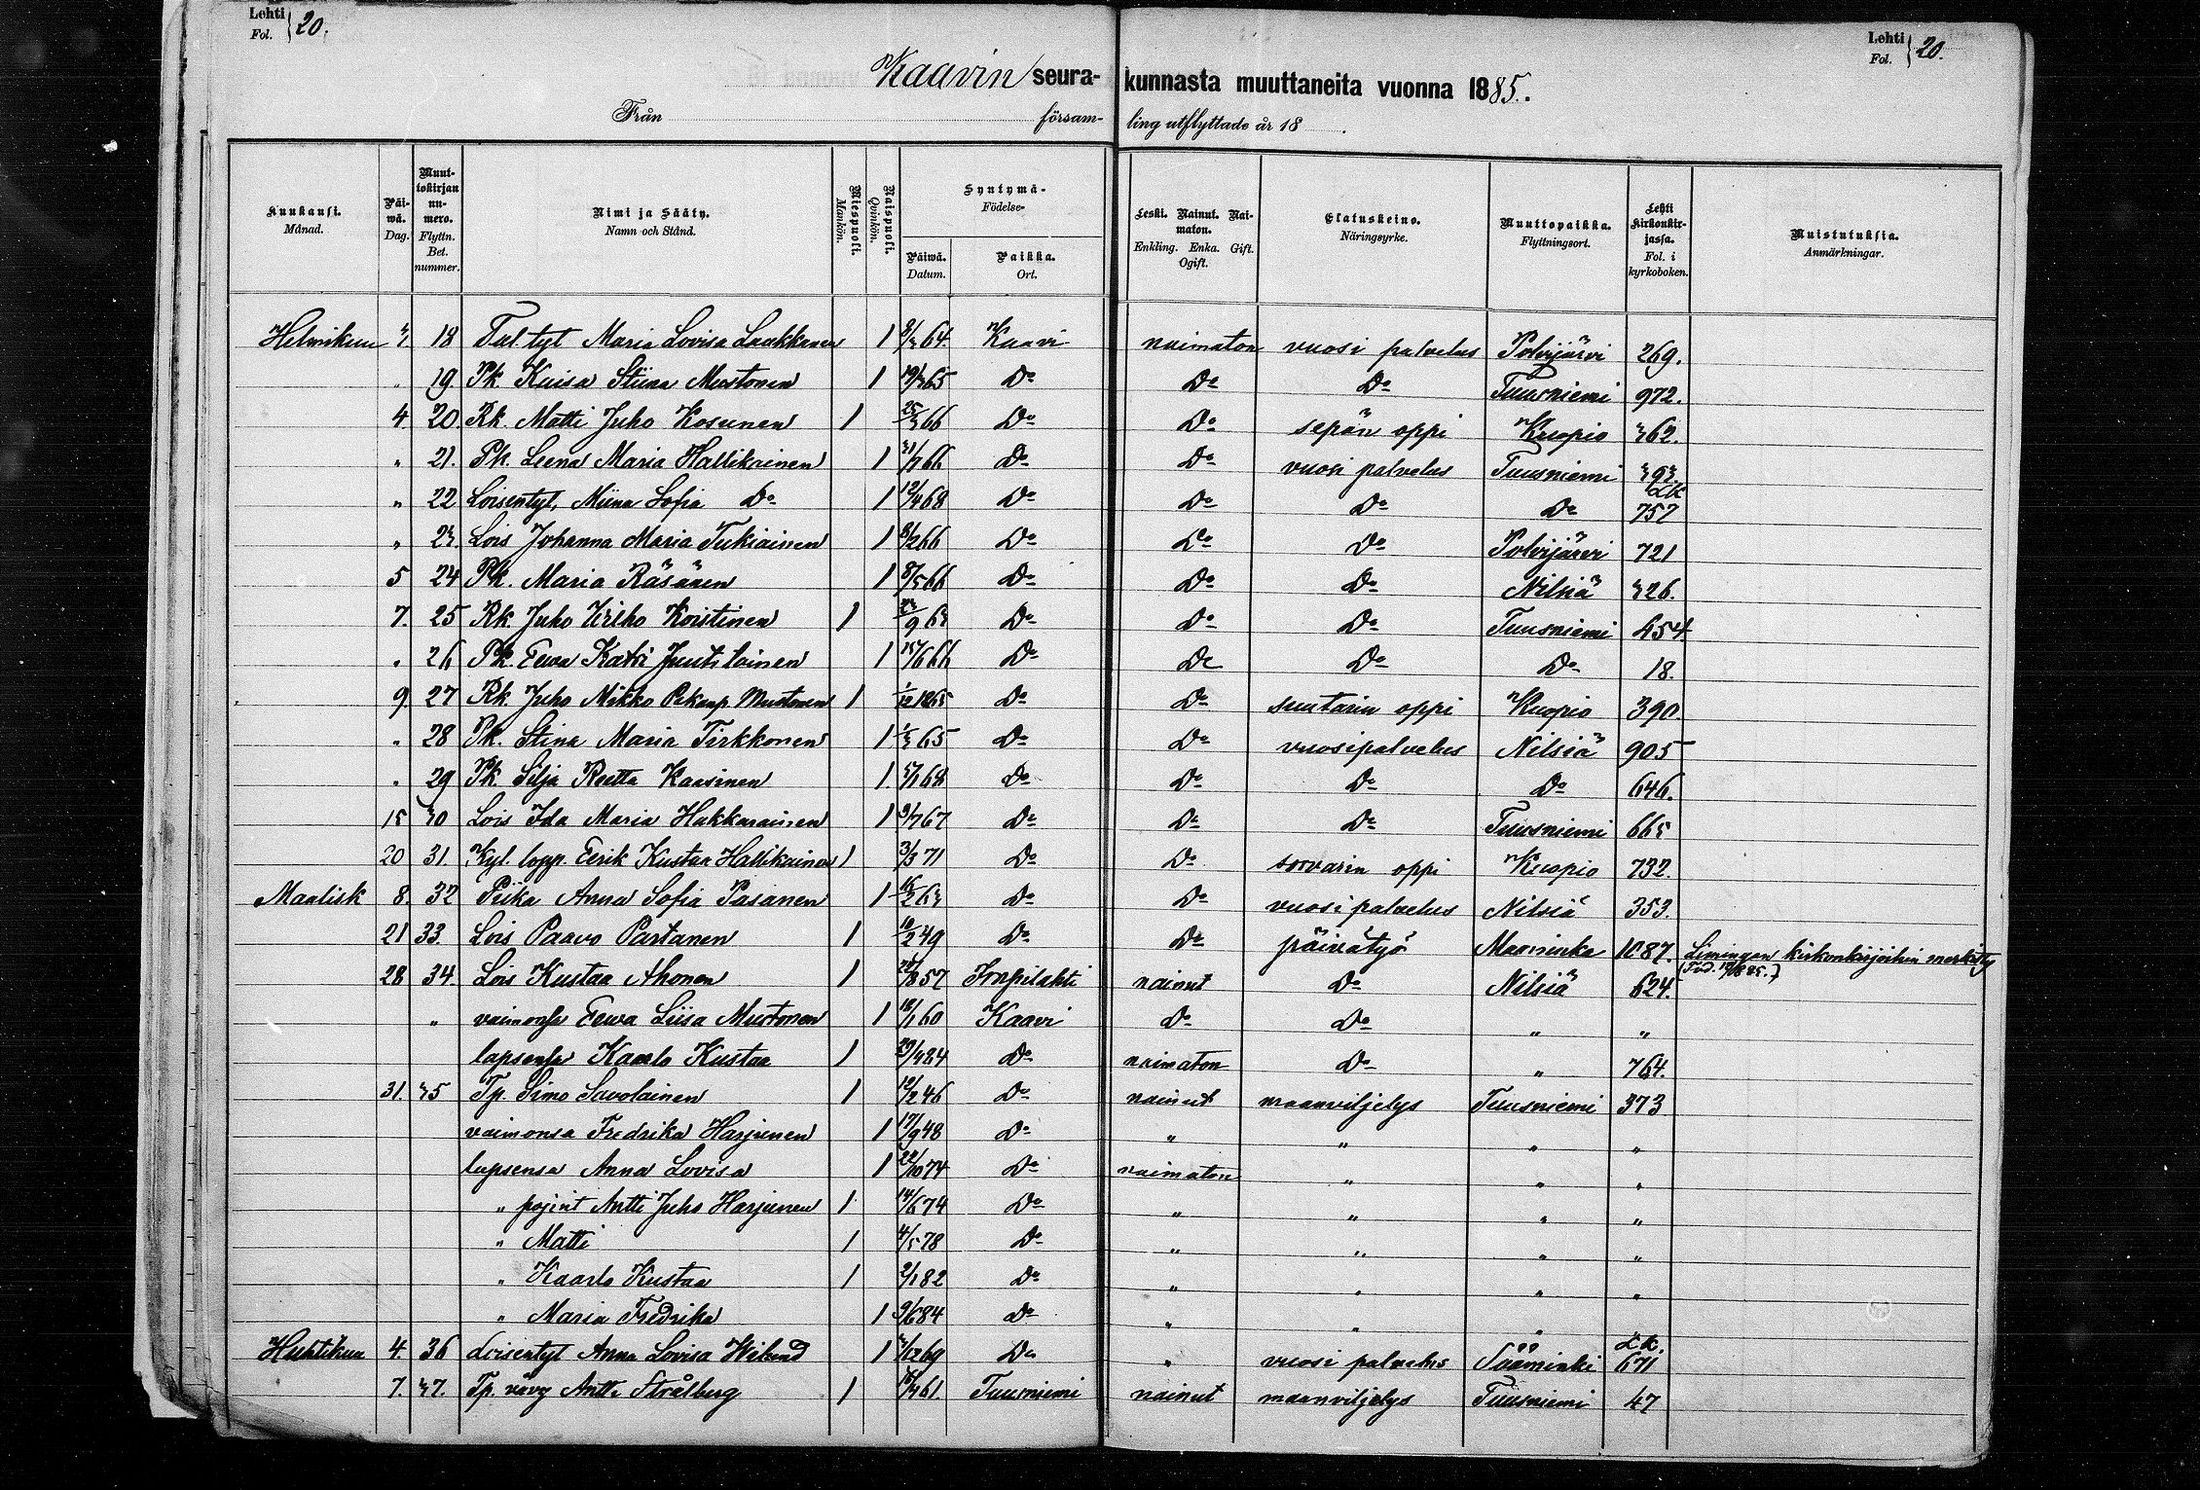 Lehti Fol. 20. Lehti Fol. 20.
Kaavin seurakunnasta muuttaneita vuonna 1885.
Från församling utflyttade år 18 .
Kuukausi. Månad. Päiwä. Dag. Muuttokirjan numero. Flyttn. Bet. nummer. Nimi ja Sääty. Namn och Stånd. Miespuoli. Mankön. Naispuoli. Qvinkön. Syntymä- Födelse- Päiwä. Datum. Paikka. Ort. Leski. Nainut. Naimaton. Enkling. Enka. Gift. Ogift. Elatuskeino. Näringsyrke. Muuttopaikka. Flyttningsort. Lehti kirkonkirjassa. Fol. i kyrkoboken. Muistutuksia. Anmärkningar.
Helmikuu 3. 18 Tal tyt Maria Lovisa Laakkanen 1 8/3 64. Kaavi naimaton vuosi palvelus Polvijärvi 269.
" 19 Pk. Kaisa Stiina Mustonen 1 65 Do Do Do Tuusniemi 972.
4 20 Rk. Matti Juho Kosunen 1 25/3 66 Do Do sepän oppi Kuopio 362.
" 21. Pk. Leena Maria Hallikainen 1 31/7 66 Do Do vuosi palvelus Tuusniemi 393.
" 22 Loisentyt. Miina Sofia Do 1 12/4 68 Do Do Do Do LK 757
" 23. Lois Johanna Maria Tukiainen 1 8/2 66 Do Do Do Polvijärvi 721
5 24 Pk. Maria Räsänen 1 8/5 66 Do Do Do Nilsiä 326.
7. 25 Rk. Juho Urho Koistinen 1 63 Do Do Do Tuusniemi 454
" 26 Pk. Eewa Katri Juutilainen 1 15/6 66 Do Do Do Do 18.
9 27 Rk. Juho Mikko Pekanp. Mustonen 1 1/12 1865 Do Do suutarin oppi Kuopio 390.
" 28 Pk. Stina Maria Tirkkonen 1 1/3 65 Do Do vuosipalvelus Nilsiä 905
" 29 Pk. Silja Reetta Kaasinen 1. 68 Do Do Do Do 646.
15 30 Lois Ida Maria Hakkarainen 1 9/7 67 Do Do Do Tuusniemi 665
20 31. Kyl. lopp. Eerik Kustaa Hallikainen 1 3/3 71 Do Do sorvarin oppi Kuopio 732.
Maalisk 8. 32 Piika Anna Sofia Pasanen 1 63 Do Do vuosi palvelus Nilsiä 353.
21 33. Lois Paavo Partanen 1 10/2 49 Do Do päivätyö Maaninka 1087. Limingan kirkonkirjoihin merkitty
28 34. Lois Kustaa Ahonen 1 57 Tropilahti nainut Do Nilsiä 624.
" vaimonsa Eewa Liisa Mustonen 1 18/1 60 Kaavi Do Do " "
lapsensa Kaarlo Kustaa 1 29/4 84 Do naimaton Do " 764.
31. 35 Tp. Simo Savolainen 1 12/2 46 Do nainut maanviljelys Tuusniemi 373
vaimonsa Fredrika Harjunen 1 17/9 48 Do " " " "
lapsensa Anna Lovisa 1 22/10 74 Do naimaton " " "
" pojint Antti Juho Harjunen 1 14/6 74 Do " " " "
" Matti 1 4/5 78 Do " " " "
" Kaarlo Kustaa 1 2/1 82 Do " " " "
" Maria Fredrika 1 9/6 84 Do " " "
Huhtikuu 4. 36 Loisentyt Anna Lovisa Wilund 1 69 Do " vuosi palvelus Sääminki LK. 671
7. 37. Tp. vävy Antti Strålberg 1 61. Tuusniemi nainut maanviljelys Tuusniemi 47